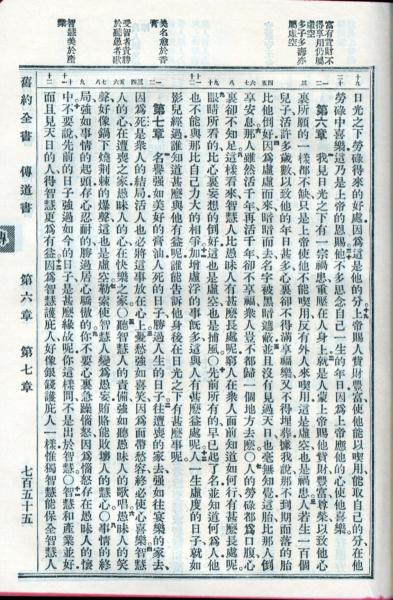 富有貲財不
得享用仍屬
虛空
多子多壽亦
屬虛空
美名愈於香
膏
受智者責勝
於聽愚者歌
智慧美於產
業
日光之下勞碌得來的好處因爲這是他的分上帝賜人貲財豐富使他能以喫用能取自己的分在他
勞碌中喜樂這乃是上帝的恩賜他不多思念自己一生的年日因爲上帝應他的心使他喜樂
第六章 我見日光之下有一宗禍患重壓在人身上就是人蒙上帝賜他貲財豐富尊榮以致他心
裏所願的一樣都不缺只是上帝使他不能喫用反有外人來喫用這是虛空也是禍患人若生一百個
兒子活許多歲數以致他的年日甚多心裏卻不得滿享福樂又不得埋葬據我說那不到期而落的胎
比他倒好因爲虛虛而來暗暗而去名字被黑暗遮蔽並且沒有見過天日也毫無知覺這胎比那人倒
享安息那人雖然活千年再活千年卻不享福衆人豈不都歸一個地方去麼〇人的勞碌都爲口腹心
裏卻不知足這樣看來智慧人比愚昧人有甚麼長處呢窮人在衆人面前知道如何行有甚麼長處呢
眼睛所看的比心裏妄想的倒好這也是虛空也是捕風〇先前所有的早已起了名並知道何爲人他
也不能與那比自己力大的相爭加增虛浮的事旣多這與人有甚麼益處呢人一生虛度的日子就如
影兒經過誰知道甚麼與他有益呢誰能告訴他身後在日光之下有甚麼事呢
第七章 名譽强如美好的膏油人死的日子勝過人生的日子往遭喪的家去强如往宴樂的家去
因爲死是衆人的結局活人也必將這事放在心上憂愁强如喜笑因爲面帶愁容終必使心喜樂智慧
人的心在遭喪之家愚昧人的心在快樂之家〇聽智慧人的責備强如聽愚昧人的歌唱愚昧人的笑
聲好像鍋下燒荊棘的爆聲這也是虛空勒索使智慧人變爲愚妄賄賂能敗壞人的慧心〇事情的終
局强如事情的起頭存心忍耐的勝過居心驕傲的你不要心裏急躁惱怒因爲惱怒存在愚昧人的懷
中不要說先前的日子强過如今的日子是甚麼緣故呢你這樣問不是出於智慧〇智慧和產業並好
而且見天日的人得智慧更爲有益因爲智慧護庇人好像銀錢護庇人一樣惟獨智慧能保全智慧人
舊約全書 傳道書 第六章 第七章 七百五十五